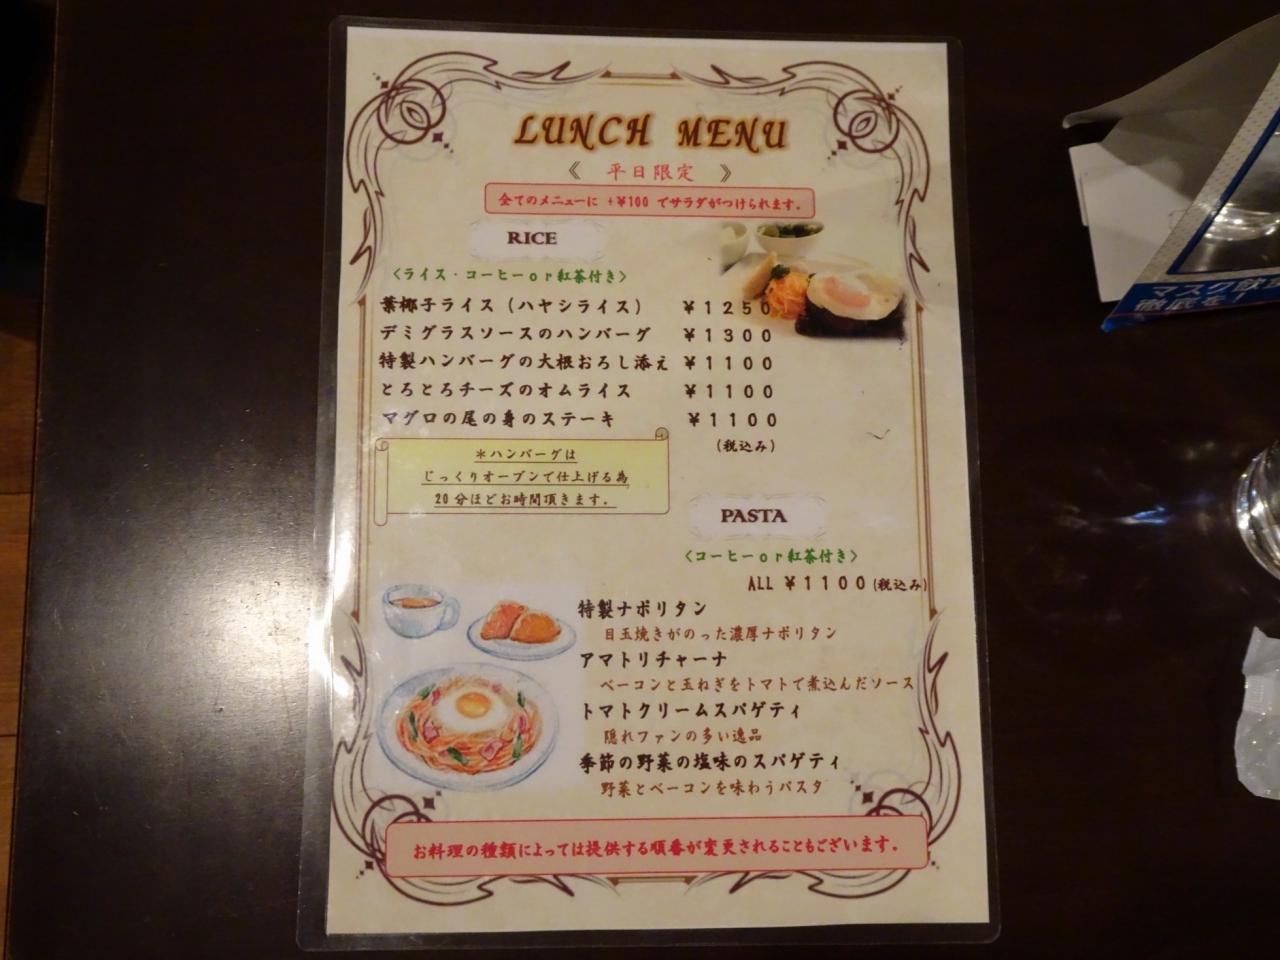 LUNCH MENU
《 平日限定 》
全てのメニューに +¥100 でサラダがつけられます。
RICE
〈ライス・コーヒーor紅茶付き〉
葉椰子ライス（ハヤシライス） ¥1250
デミグラスソースのハンバーグ ¥1300
特製ハンバーグの大根おろし添え ¥1100
とろとろチーズのオムライス ¥1100
マグロの尾の身のステーキ ¥1100
(税込み)
＊ハンバーグは
じっくりオーブンで仕上げる為
20分ほどお時間頂きます。
PASTA
〈コーヒーor紅茶付き〉
ALL ¥1100(税込み)
特製ナポリタン
目玉焼きがのった濃厚ナポリタン
アマトリチャーナ
ベーコンと玉ねぎをトマトで煮込んだソース
トマトクリームスパゲティ
隠れファンの多い逸品
季節の野菜の塩味のスパゲティ
野菜とベーコンを味わうパスタ
お料理の種類によっては提供する順番が変更されることもございます。
マスク飲
徹底を！